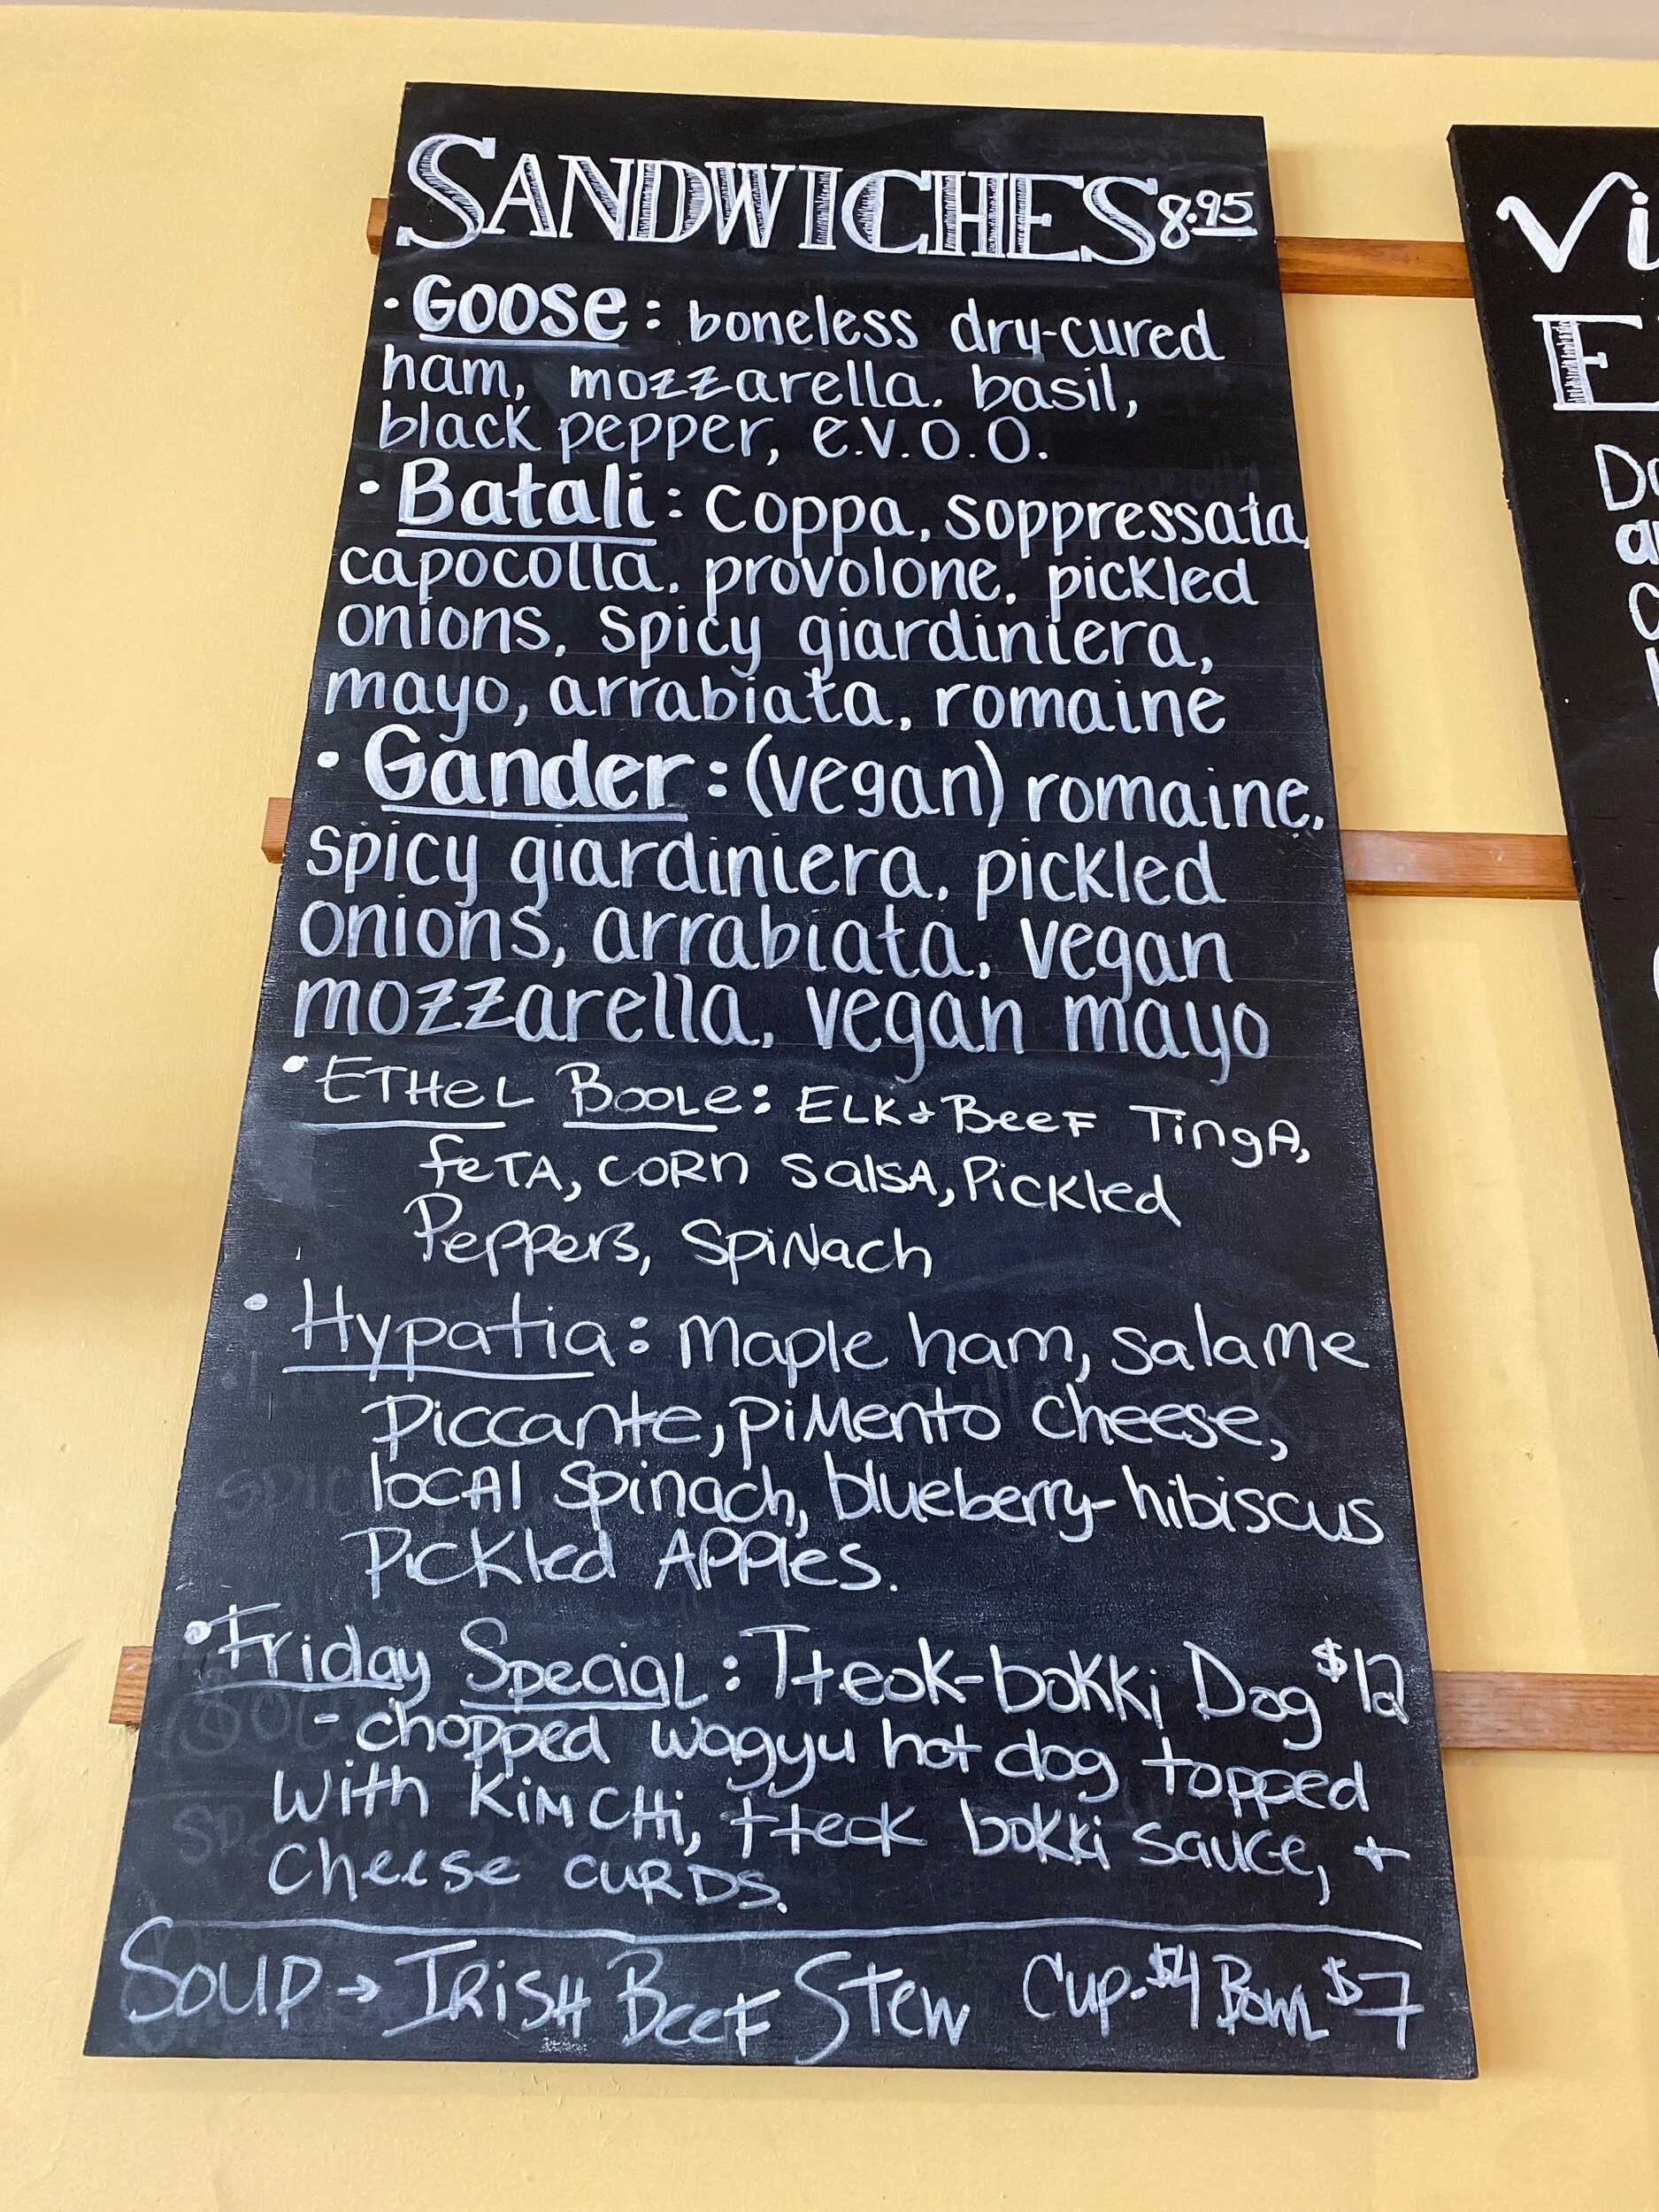 SANDWICHES 8.95
• Goose: boneless dry-cured
ham, mozzarella, basil,
black pepper, e.v.o.o.
• Batali: coppa, soppressata,
capocolla, provolone, pickled
onions, spicy giardiniera,
mayo, arrabiata, romaine
• Gander: (vegan) romaine,
spicy giardiniera, pickled
onions, arrabiata, vegan
mozzarella, vegan mayo
• ETHeL BOOLe: ELK + BeeF TingA,
feTA, CORN SalsA, Pickled
Peppers, SpiNach
• Hypatia: Maple ham, Salame
Piccante, piMento cheese,
locAl spinach, blueberry-hibiscus
Pickled APPles.
• Friday SpeciaL: Tteok-bokki Dog $12
- chopped wagyu hot dog topped
with KiMCHi, tteok bokki sauce, +
Cheese CURDS.
SOUP → IRiSH BeeF Stew Cup-$4 Bowl $7
Vi
E
Do
a
c